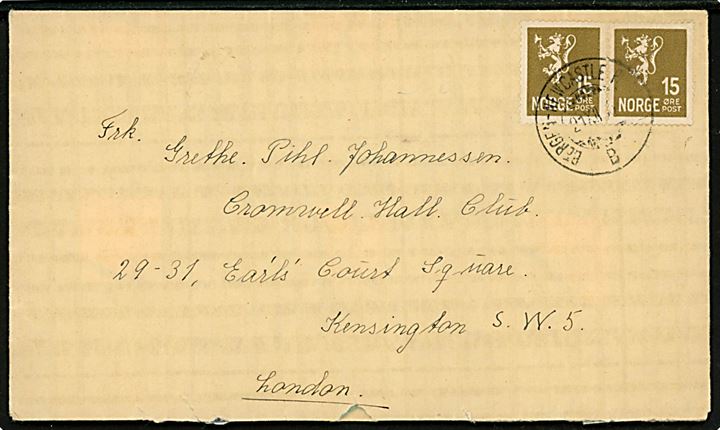 15
NORGE ØRE POST
15
NORGE ØRE POST
BERGEN-NEWCASTLE
Frk.
Grethe. Pihl. Johannessen.
Cromwell. Hall. Club.
29-31, Earl's Court Square.
Kensington S. W. 5.
London.